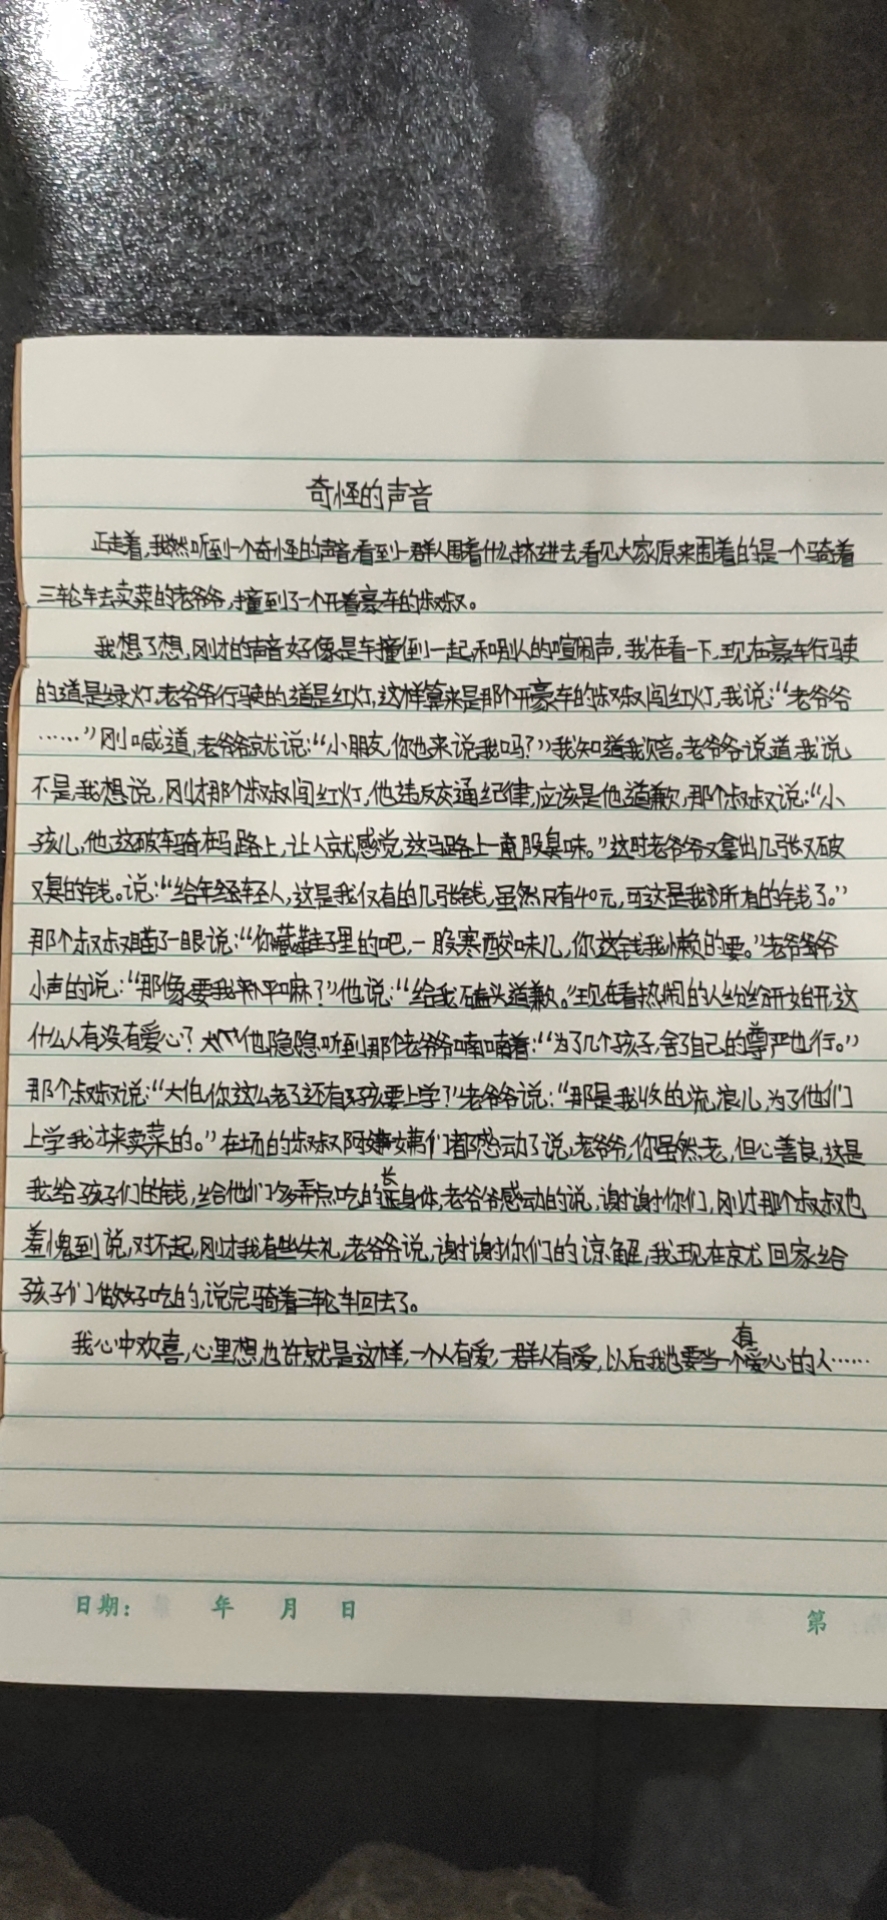 奇怪的声音
正走着,我然听到一个奇怪的声音,看到一群人围着什么,挤进去,看见大家原来围着的是一个骑着
三轮车去卖菜的老爷爷,撞到了一个开着豪车的叔叔。
我想了想,刚才的声音好像是车撞到一起,和别人的喧闹声,我在看一下,现在豪车行驶
的道是绿灯,老爷爷行驶的道是红灯,这样算来是那个开豪车的叔叔闯红灯,我说:“老爷爷
……”刚喊道,老爷爷就说:“小朋友,你也来说我吗?”我知道我赔。老爷爷说道,我说
不是,我想说,刚才那个叔叔闯红灯,他违反交通纪律,应该是他道歉,那个叔叔说:“小
孩儿,他这破车骑在马路上,让人就感觉这马路上一直股臭味。”这时老爷爷又拿出几张又破
又臭的钱。说:“给年轻人,这是我仅有的几张钱,虽然只有40元,可这是我所有的钱了。”
那个叔叔瞄了一眼说:“你藏鞋子里的吧,一股寒酸味儿,你这钱我懒的要。”老爷爷
小声的说:“那你要我怎嘛?”他说:“给我磕头道歉。”现在看热闹的人纷纷开始,这
什么人有没有爱心?他隐隐听到那个老爷爷喃喃着:“为了几个孩子,舍了自己的尊严也行。”
那个叔叔说:“大伯,你这么老了还有孩要上学?”老爷爷说:“那是我收的流浪儿,为了他们
上学我才来卖菜的。”在场的叔叔阿姨们都感动了说,老爷爷,你虽然老,但心善良,这是
我给孩子们的钱,给他们多弄点吃的长身体,老爷爷感动的说,谢谢你们,刚才那个叔叔也
羞愧到说,对不起,刚才我有些失礼,老爷爷说,谢谢你们的谅解,我现在就回家给
孩子们做好吃的,说完骑着三轮车回去了。
我心中欢喜,心里想,也许就是这样,一个人有爱,一群人有爱,以后我也要当一个有爱心的人……
日期: 年 月 日
第